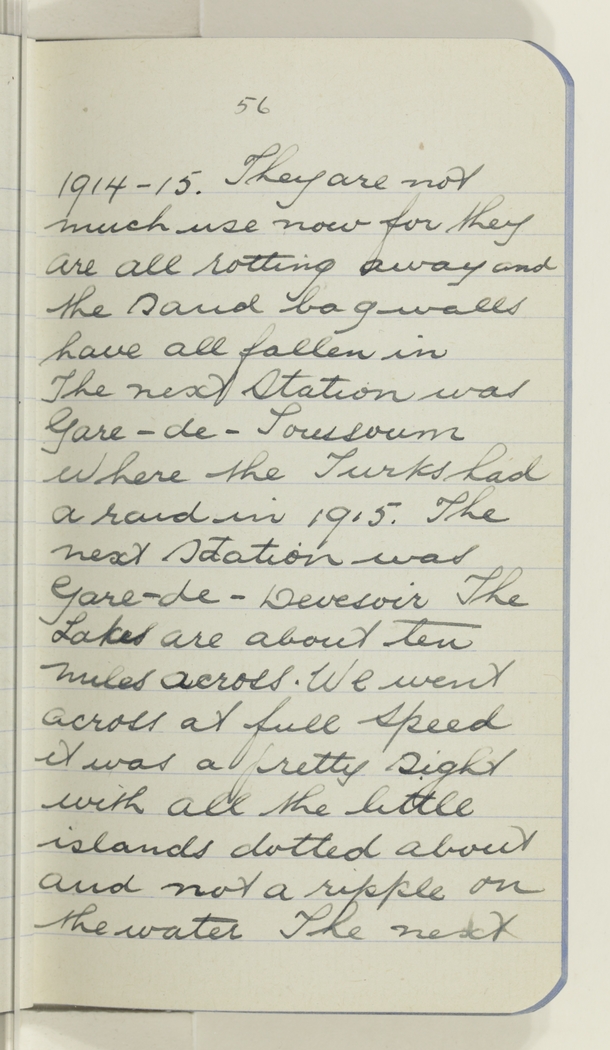 56
1914-15. They are not
much use now for they
are all rotting away and
the sand bag walls
have all fallen in
The next Station was
Gare-de-Toussoum
where the Turks had
a raid in 1915. The
next Station was
Gare-de-Deversoir The
Lakes are about ten
miles across. We went
across at full speed
it was a pretty sight
with all the little
islands dotted about
and not a ripple on
the water The next